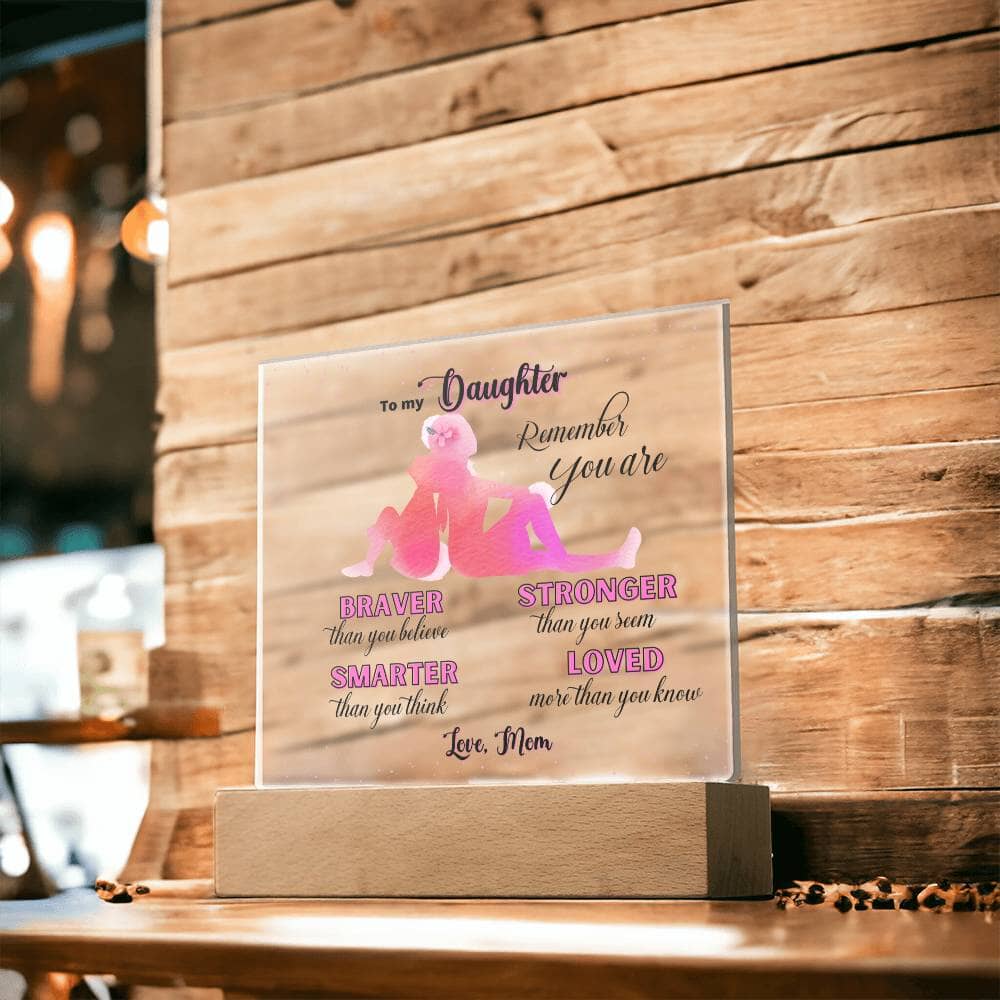 To my Daughter
Remember
You are
BRAVER
than you believe
STRONGER
than you seem
SMARTER
than you think
LOVED
more than you know
Love, Mom